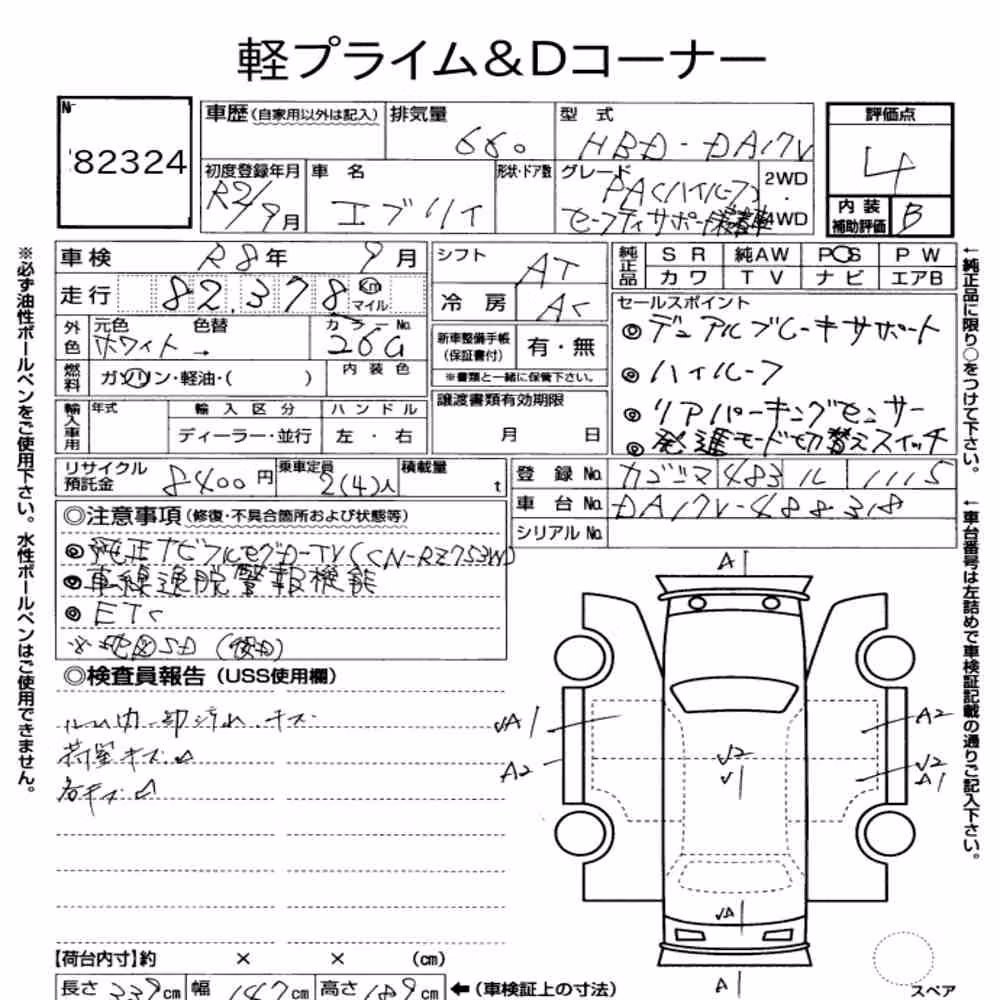 軽プライム&Dコーナー
No.
82324
車歴(自家用以外は記入)
排気量
660
型 式
HBD-DA17V
評価点
4
内装補助評価
B
初度登録年月
R2/9月
車 名
エブリイ
形状・ドア数
グレード
PA(ハイルーフ)
セーフティサポート装着車
2WD
4WD
車検 R8年 9月
走行 82,378 km マイル
外色
元色 ホワイト →
色替
カラーNo. 26U
燃料 ガソリン・軽油・( )
内装色
輸入車用
年式
輸入区分
ディーラー・並行
ハンドル
左・右
シフト AT
冷房 AC
新車整備手帳(保証書付) 有・無
※書類と一緒に保管下さい。
譲渡書類有効期限
月 日
純正品
SR 純AW PS PW
カワ TV ナビ エアB
セールスポイント
◎デュアルブレーキサポート
◎ハイルーフ
◎リアパーキングセンサー
◎発進モード切替えスイッチ
リサイクル預託金 8400円
乗車定員 2(4)人
積載量 t
登録No. カゴシマ 483 ル 1115
車台No. DA17V-488318
シリアルNo.
◎注意事項(修復・不具合箇所および状態等)
◎純正ナビフルセグD-TV(CN-RZ753W)
◎車線逸脱警報機能
◎ETC
※地図SD(使用)
◎検査員報告(USS使用欄)
ルーム内一部汚れ、キズ
荷室キズ
各キズ
A
A1
A2
A2
A1
A
A
スペア
【荷台内寸】約 × × (cm)
長さ 339cm
幅 147cm
高さ 189cm
←(車検証上の寸法)
※必ず油性ボールペンをご使用下さい。水性ボールペンはご使用できません。
←純正品に限り○をつけて下さい。
←車台番号は左詰めで車検証記載の通りご記入下さい。